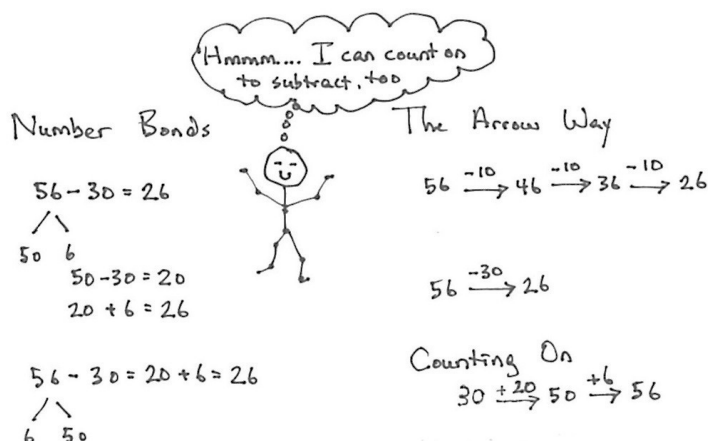 Hmmm.... I can count on
to subtract, too
Number Bonds
56 - 30 = 26
50 6
50 - 30 = 20
20 + 6 = 26
56 - 30 = 20 + 6 = 26
6 50
The Arrow Way
-10 -10 -10
56 → 46 → 36 → 26
-30
56 → 26
Counting On
+20 +6
30 → 50 → 56